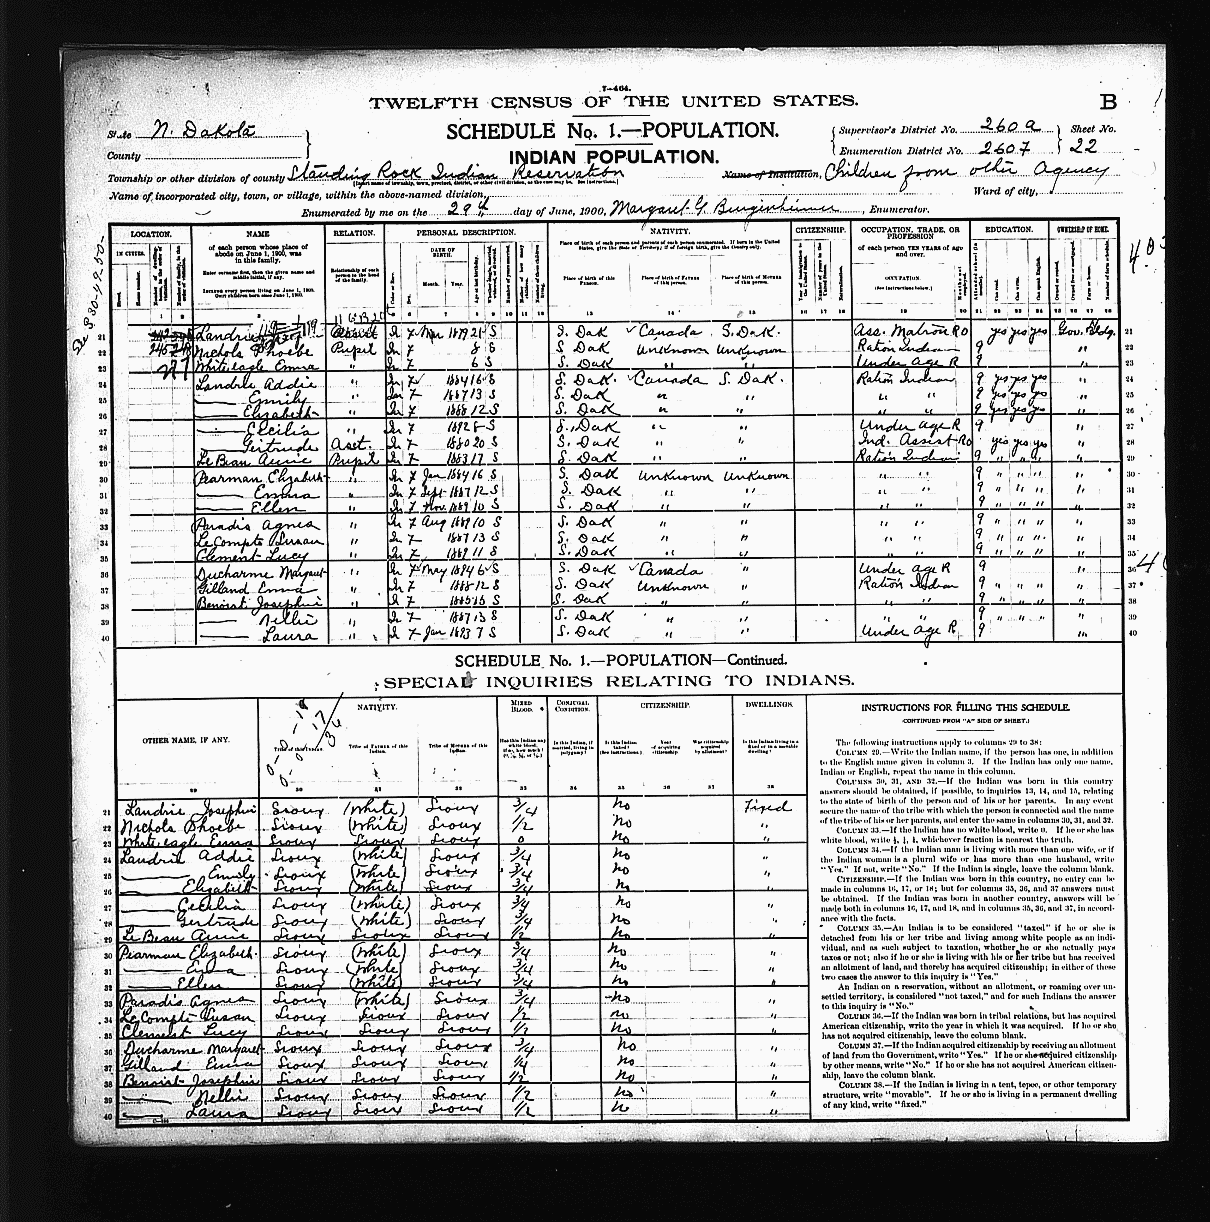 7-464.
TWELFTH CENSUS OF THE UNITED STATES.
B
State N. Dakota
SCHEDULE No. 1.—POPULATION.
Supervisor's District No. 260a
Sheet No.
County
INDIAN POPULATION.
Enumeration District No. 2607
22
Township or other division of county Standing Rock Indian Reservation
Name of Institution, Children from other Agency
Name of incorporated city, town, or village, within the above-named division,
Ward of city,
Enumerated by me on the 29th day of June, 1900, Margaret G. , Enumerator.
LOCATION. NAME RELATION. PERSONAL DESCRIPTION. NATIVITY. CITIZENSHIP. OCCUPATION, TRADE, OR PROFESSION EDUCATION. OWNERSHIP OF HOME.
of each person whose place of abode on June 1, 1900, was in this family.
Enter surname first, then the given name and middle initial, if any.
Include every person living on June 1, 1900. Omit children born since June 1, 1900.
Relationship of each person to the head of the family.
DATE OF BIRTH.
Month. Year.
Place of birth of this Person. Place of birth of Father of this person. Place of birth of Mother of this person.
of each person TEN YEARS of age and over.
OCCUPATION.
21 Landrie Assist In F Mar 1879 21 S S. Dak Canada S. Dak. Ass. Matron Ro yes yes yes Gov. Bldg. 21
22 Nichols Phoebe Pupil In F 8 S S Dak Unknown Unknown Ration Indian 9 " 22
23 White eagle Emma " In F 6 S S. Dak Under age R 9 " 23
24 Landrie Addie " In F 1884 16 S S. Dak. Canada S. Dak. Ration Indian 9 yes yes yes " 24
25 —— Emily " In F 1887 13 S S. Dak " " " " 9 yes yes yes " 25
26 —— Elizabeth " In F 1888 12 S S. Dak " " " " 9 yes yes yes " 26
27 —— Ecilia " In F 1892 8 S S. Dak " " Under age R 9 " 27
28 —— Gertrude Asst. In F 1880 20 S S. Dak " " Ind. Assist Ro yes yes yes " 28
29 Le Beau Annie Pupil In F 1883 17 S S. Dak " " Ration Indian 9 " " " " 29
30 Pearman Elizabeth " In F Jan 1884 16 S S. Dak Unknown Unknown 9 " " " " 30
31 —— Emma " In F Sept 1887 12 S S. Dak " " " " 9 " " " " 31
32 —— Ellen " In F Nov. 1889 10 S S. Dak " " " " 9 " " " " 32
33 Paradis Agnes " In F Aug 1889 10 S S. Dak " " " " 9 " " " " 33
34 Le Compte Susan " In F 1887 13 S S. Dak " " " " 9 " " " " 34
35 Clement Lucy " In F 1889 11 S S. Dak " " " " 9 " " " " 35
36 Ducharme Margaret " In F May 1894 6 S S. Dak Canada " Under age R 9 " 36
37 Gilland Emma " In F 1888 12 S S. Dak Unknown " Ration Indian 9 " " " " 37
38 Benoist Josephine " In F 1885 15 S S. Dak " " " " 9 " " " " 38
39 —— Nellie " In F 1887 13 S S. Dak " " " " 9 " " " " 39
40 —— Laura " In F Jan 1893 7 S S. Dak " " Under age R 9 " 40
SCHEDULE No. 1.—POPULATION—Continued.
SPECIAL INQUIRIES RELATING TO INDIANS.
OTHER NAME, IF ANY. NATIVITY. MIXED BLOOD. CONJUGAL CONDITION. CITIZENSHIP. DWELLINGS.
Tribe of this Indian. Tribe of Father of this Indian. Tribe of Mother of this Indian.
29 30 31 32 33 34 35 36 37 38
21 Landrie Josephine Sioux (White) Sioux 3/4 No Fixed
22 Nichols Phoebe Sioux (White) Sioux 1/2 No "
23 White eagle Emma Sioux Sioux Sioux 0 No "
24 Landrie Addie Sioux (White) Sioux 3/4 No "
25 —— Emily Sioux (White) Sioux 3/4 No "
26 —— Elizabeth Sioux (White) Sioux 3/4 No "
27 —— Cecilia Sioux (White) Sioux 3/4 No "
28 —— Gertrude Sioux (White) Sioux 3/4 No "
29 Le Beau Annie Sioux Sioux Sioux 1/2 No "
30 Pearman Elizabeth Sioux (White) Sioux 3/4 No "
31 —— Emma Sioux (White) Sioux 3/4 No "
32 —— Ellen Sioux (White) Sioux 3/4 No "
33 Paradis Agnes Sioux (White) Sioux 3/4 No "
34 Le Compte Susan Sioux Sioux Sioux 1/2 No "
35 Clement Lucy Sioux Sioux Sioux 1/2 No "
36 Ducharme Margaret Sioux Sioux Sioux 3/4 No "
37 Gilland Emma Sioux Sioux Sioux 1/4 No "
38 Benoist Josephine Sioux Sioux Sioux 1/2 No "
39 —— Nellie Sioux Sioux Sioux 1/2 No "
40 —— Laura Sioux Sioux Sioux 1/2 No "
INSTRUCTIONS FOR FILLING THIS SCHEDULE.
(CONTINUED FROM "A" SIDE OF SHEET.)
The following instructions apply to columns 29 to 38:
COLUMN 29.—Write the Indian name, if the person has one, in addition
to the English name given in column 3. If the Indian has only one name,
Indian or English, repeat the name in this column.
COLUMNS 30, 31, AND 32.—If the Indian was born in this country
answers should be obtained, if possible, to inquiries 13, 14, and 15, relating
to the state of birth of the person and of his or her parents. In any event
secure the name of the tribe with which the person is connected and the name
of the tribe of his or her parents, and enter the same in columns 30, 31, and 32.
COLUMN 33.—If the Indian has no white blood, write 0. If he or she has
white blood, write ½, ¼, ⅛, whichever fraction is nearest the truth.
COLUMN 34.—If the Indian man is living with more than one wife, or if
the Indian woman is a plural wife or has more than one husband, write
"Yes." If not, write "No." If the Indian is single, leave the column blank.
CITIZENSHIP.—If the Indian was born in this country, no entry can be
made in columns 16, 17, or 18; but for columns 35, 36, and 37 answers must
be obtained. If the Indian was born in another country, answers will be
made both in columns 16, 17, and 18, and in columns 35, 36, and 37, in accord-
ance with the facts.
COLUMN 35.—An Indian is to be considered "taxed" if he or she is
detached from his or her tribe and living among white people as an indi-
vidual, and as such subject to taxation, whether he or she actually pays
taxes or not; also if he or she is living with his or her tribe but has received
an allotment of land, and thereby has acquired citizenship; in either of these
two cases the answer to this inquiry is "Yes."
An Indian on a reservation, without an allotment, or roaming over un-
settled territory, is considered "not taxed," and for such Indians the answer
to this inquiry is "No."
COLUMN 36.—If the Indian was born in tribal relations, but has acquired
American citizenship, write the year in which it was acquired. If he or she
has not acquired citizenship, leave the column blank.
COLUMN 37.—If the Indian acquired citizenship by receiving an allotment
of land from the Government, write "Yes." If he or she acquired citizenship
by other means, write "No." If he or she has not acquired American citizen-
ship, leave the column blank.
COLUMN 38.—If the Indian is living in a tent, tepee, or other temporary
structure, write "movable". If he or she is living in a permanent dwelling
of any kind, write "fixed."